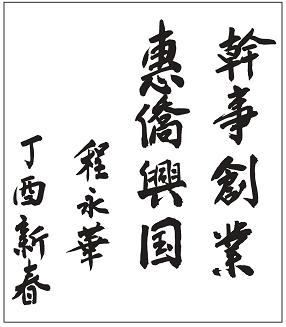 幹事創業
惠僑興国
程永華
丁酉新春